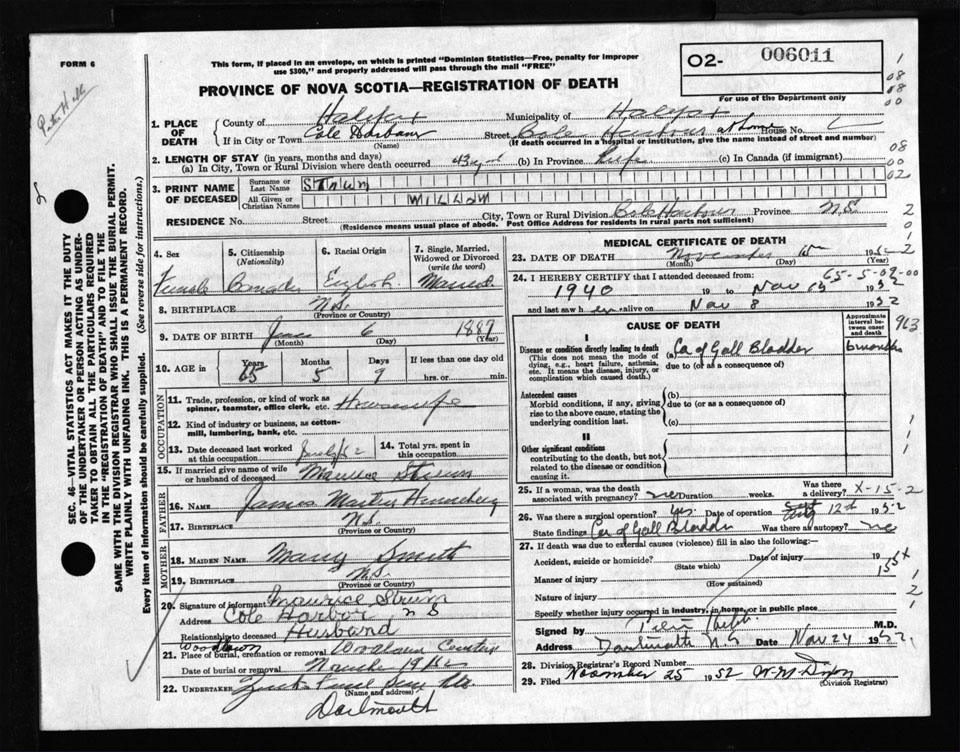 FORM 6
This form, if placed in an envelope, on which is printed "Dominion Statistics—Free, penalty for improper
use $300," and properly addressed will pass through the mail "FREE"
02- 006011
PROVINCE OF NOVA SCOTIA—REGISTRATION OF DEATH
For use of the Department only
1. PLACE OF DEATH
County of Halifax Municipality of Halifax
If in City or Town Cole Harbour Street Cole Harbour at home House No.
(Name) (If death occurred in a hospital or institution, give the name instead of street and number)
2. LENGTH OF STAY (in years, months and days)
(a) In City, Town or Rural Division where death occurred 43 yrs (b) In Province Life (c) In Canada (if immigrant)
3. PRINT NAME OF DECEASED
Surname or Last Name
All Given or Christian Names
RESIDENCE No. Street City, Town or Rural Division Cole Harbour Province N.S.
(Residence means usual place of abode. Post Office Address for residents in rural parts not sufficient)
4. Sex Female
5. Citizenship (Nationality)
6. Racial Origin English
7. Single, Married, Widowed or Divorced (write the word) Married
8. BIRTHPLACE N.S.
(Province or Country)
9. DATE OF BIRTH June 6 1887
(Month) (Day) (Year)
10. AGE in Years 65 Months 5 Days 9 If less than one day old hrs. or min.
OCCUPATION
11. Trade, profession, or kind of work as spinner, teamster, office clerk, etc. Housewife
12. Kind of industry or business, as cotton-mill, lumbering, bank, etc.
13. Date deceased last worked at this occupation
14. Total yrs. spent in this occupation
15. If married give name of wife or husband of deceased Maurice Strum
FATHER
16. NAME James
17. BIRTHPLACE N.S.
(Province or Country)
MOTHER
18. MAIDEN NAME Mary Smith
19. BIRTHPLACE N.S.
(Province or Country)
20. Signature of informant Maurice Strum
Address Cole Harbor N S
Relationship to deceased Husband
Woodlawn
21. Place of burial, cremation or removal Woodlawn
Date of burial or removal
22. UNDERTAKER
(Name and address)
Dartmouth
MEDICAL CERTIFICATE OF DEATH
23. DATE OF DEATH November 15 1952
(Month) (Day) (Year)
65-5-09-00
24. I HEREBY CERTIFY that I attended deceased from:
1940 19 to Nov 15 1952
and last saw her alive on Nov 8 1952
CAUSE OF DEATH
Approximate interval between onset and death
963
I
Disease or condition directly leading to death
(This does not mean the mode of dying, e.g., heart failure, asthenia, etc. It means the disease, injury, or complication which caused death.)
(a) Ca of Gall Bladder 6 months
due to (or as a consequence of)
Antecedent causes
Morbid conditions, if any, giving rise to the above cause, stating the underlying condition last.
(b)
due to (or as a consequence of)
(c)
II
Other significant conditions
contributing to the death, but not related to the disease or condition causing it.
25. If a woman, was the death associated with pregnancy? no Duration weeks. Was there a delivery?
X-15-2
26. Was there a surgical operation? yes. Date of operation 12th 1952
State findings Ca of Gall Bladder Was there an autopsy? no
27. If death was due to external causes (violence) fill in also the following:
Accident, suicide or homicide? Date of injury 19
(State which)
Manner of injury
(How sustained)
Nature of injury
Specify whether injury occurred in industry, in home, or in public place
Signed by M.D.
Address Dartmouth N.S Date Nov 24 1952.
28. Division Registrar's Record Number
29. Filed November 25 1952
(Division Registrar)
SEC. 46—VITAL STATISTICS ACT MAKES IT THE DUTY
OF THE UNDERTAKER OR PERSON ACTING AS UNDER-
TAKER TO OBTAIN ALL THE PARTICULARS REQUIRED
IN THE "REGISTRATION OF DEATH" AND TO FILE THE
SAME WITH THE DIVISION REGISTRAR WHO SHALL ISSUE THE BURIAL PERMIT.
WRITE PLAINLY WITH UNFADING INK. THIS IS A PERMANENT RECORD.
Every item of information should be carefully supplied. (See reverse side for instructions.)